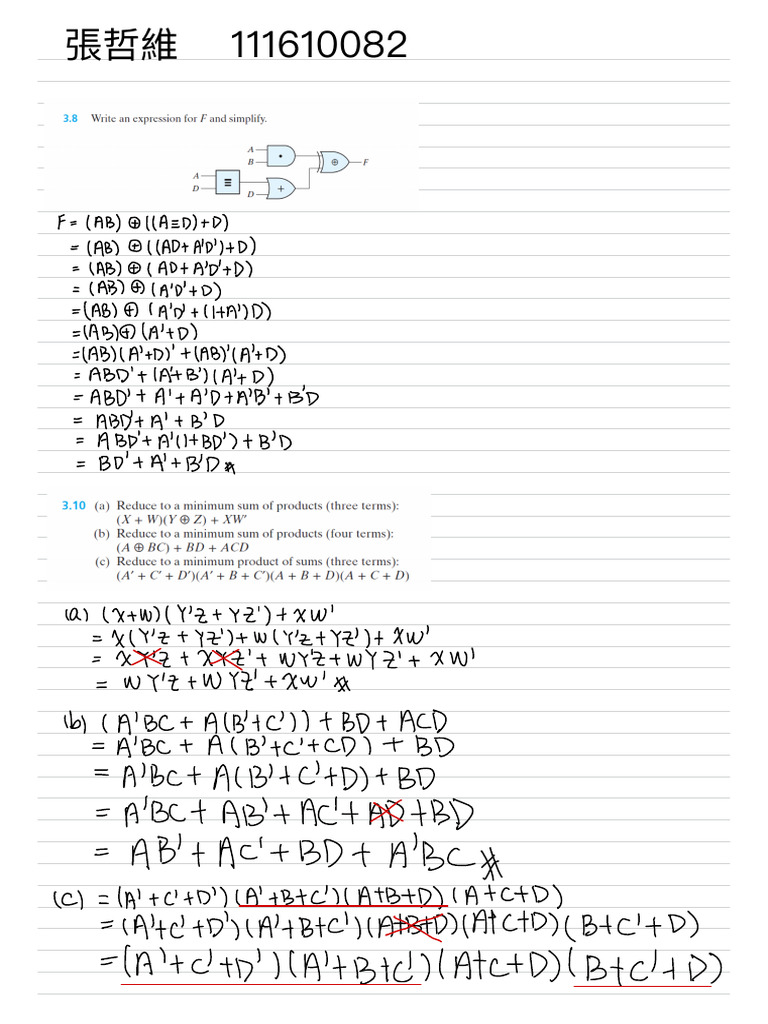 張哲維 111610082
3.8 Write an expression for F and simplify.
A
B
A
D
D
≡
•
+
⊕
F
F = (AB) ⊕ ((A≡D)+D)
= (AB) ⊕ ((AD+A'D')+D)
= (AB) ⊕ (AD+A'D'+D)
= (AB) ⊕ (A'D'+D)
= (AB) ⊕ (A'D'+(1+A')D)
= (AB) ⊕ (A'+D)
= (AB)(A'+D)' + (AB)'(A'+D)
= ABD' + (A'+B')(A'+D)
= ABD' + A' + A'D + A'B' + B'D
= ABD' + A' + B'D
= ABD' + A'(1+BD') + B'D
= BD' + A' + B'D #
3.10 (a) Reduce to a minimum sum of products (three terms):
(X + W)(Y ⊕ Z) + XW'
(b) Reduce to a minimum sum of products (four terms):
(A ⊕ BC) + BD + ACD
(c) Reduce to a minimum product of sums (three terms):
(A' + C' + D')(A' + B + C')(A + B + D)(A + C + D)
(a) (X+W)(Y'Z+YZ')+XW'
= X(Y'Z+YZ')+W(Y'Z+YZ')+XW'
= XY'Z + XYZ' + WY'Z + WYZ' + XW'
= WY'Z + WYZ' + XW' #
(b) (A'BC + A(B'+C')) + BD + ACD
= A'BC + A(B'+C'+CD) + BD
= A'BC + A(B'+C'+D) + BD
= A'BC + AB' + AC' + AD + BD
= AB' + AC' + BD + A'BC #
(C) = (A'+C'+D')(A'+B+C')(A+B+D)(A+C+D)
= (A'+C'+D')(A'+B+C')(A+B+D)(A+C+D)(B+C'+D)
= (A'+C'+D')(A'+B+C')(A+C+D)(B+C'+D)